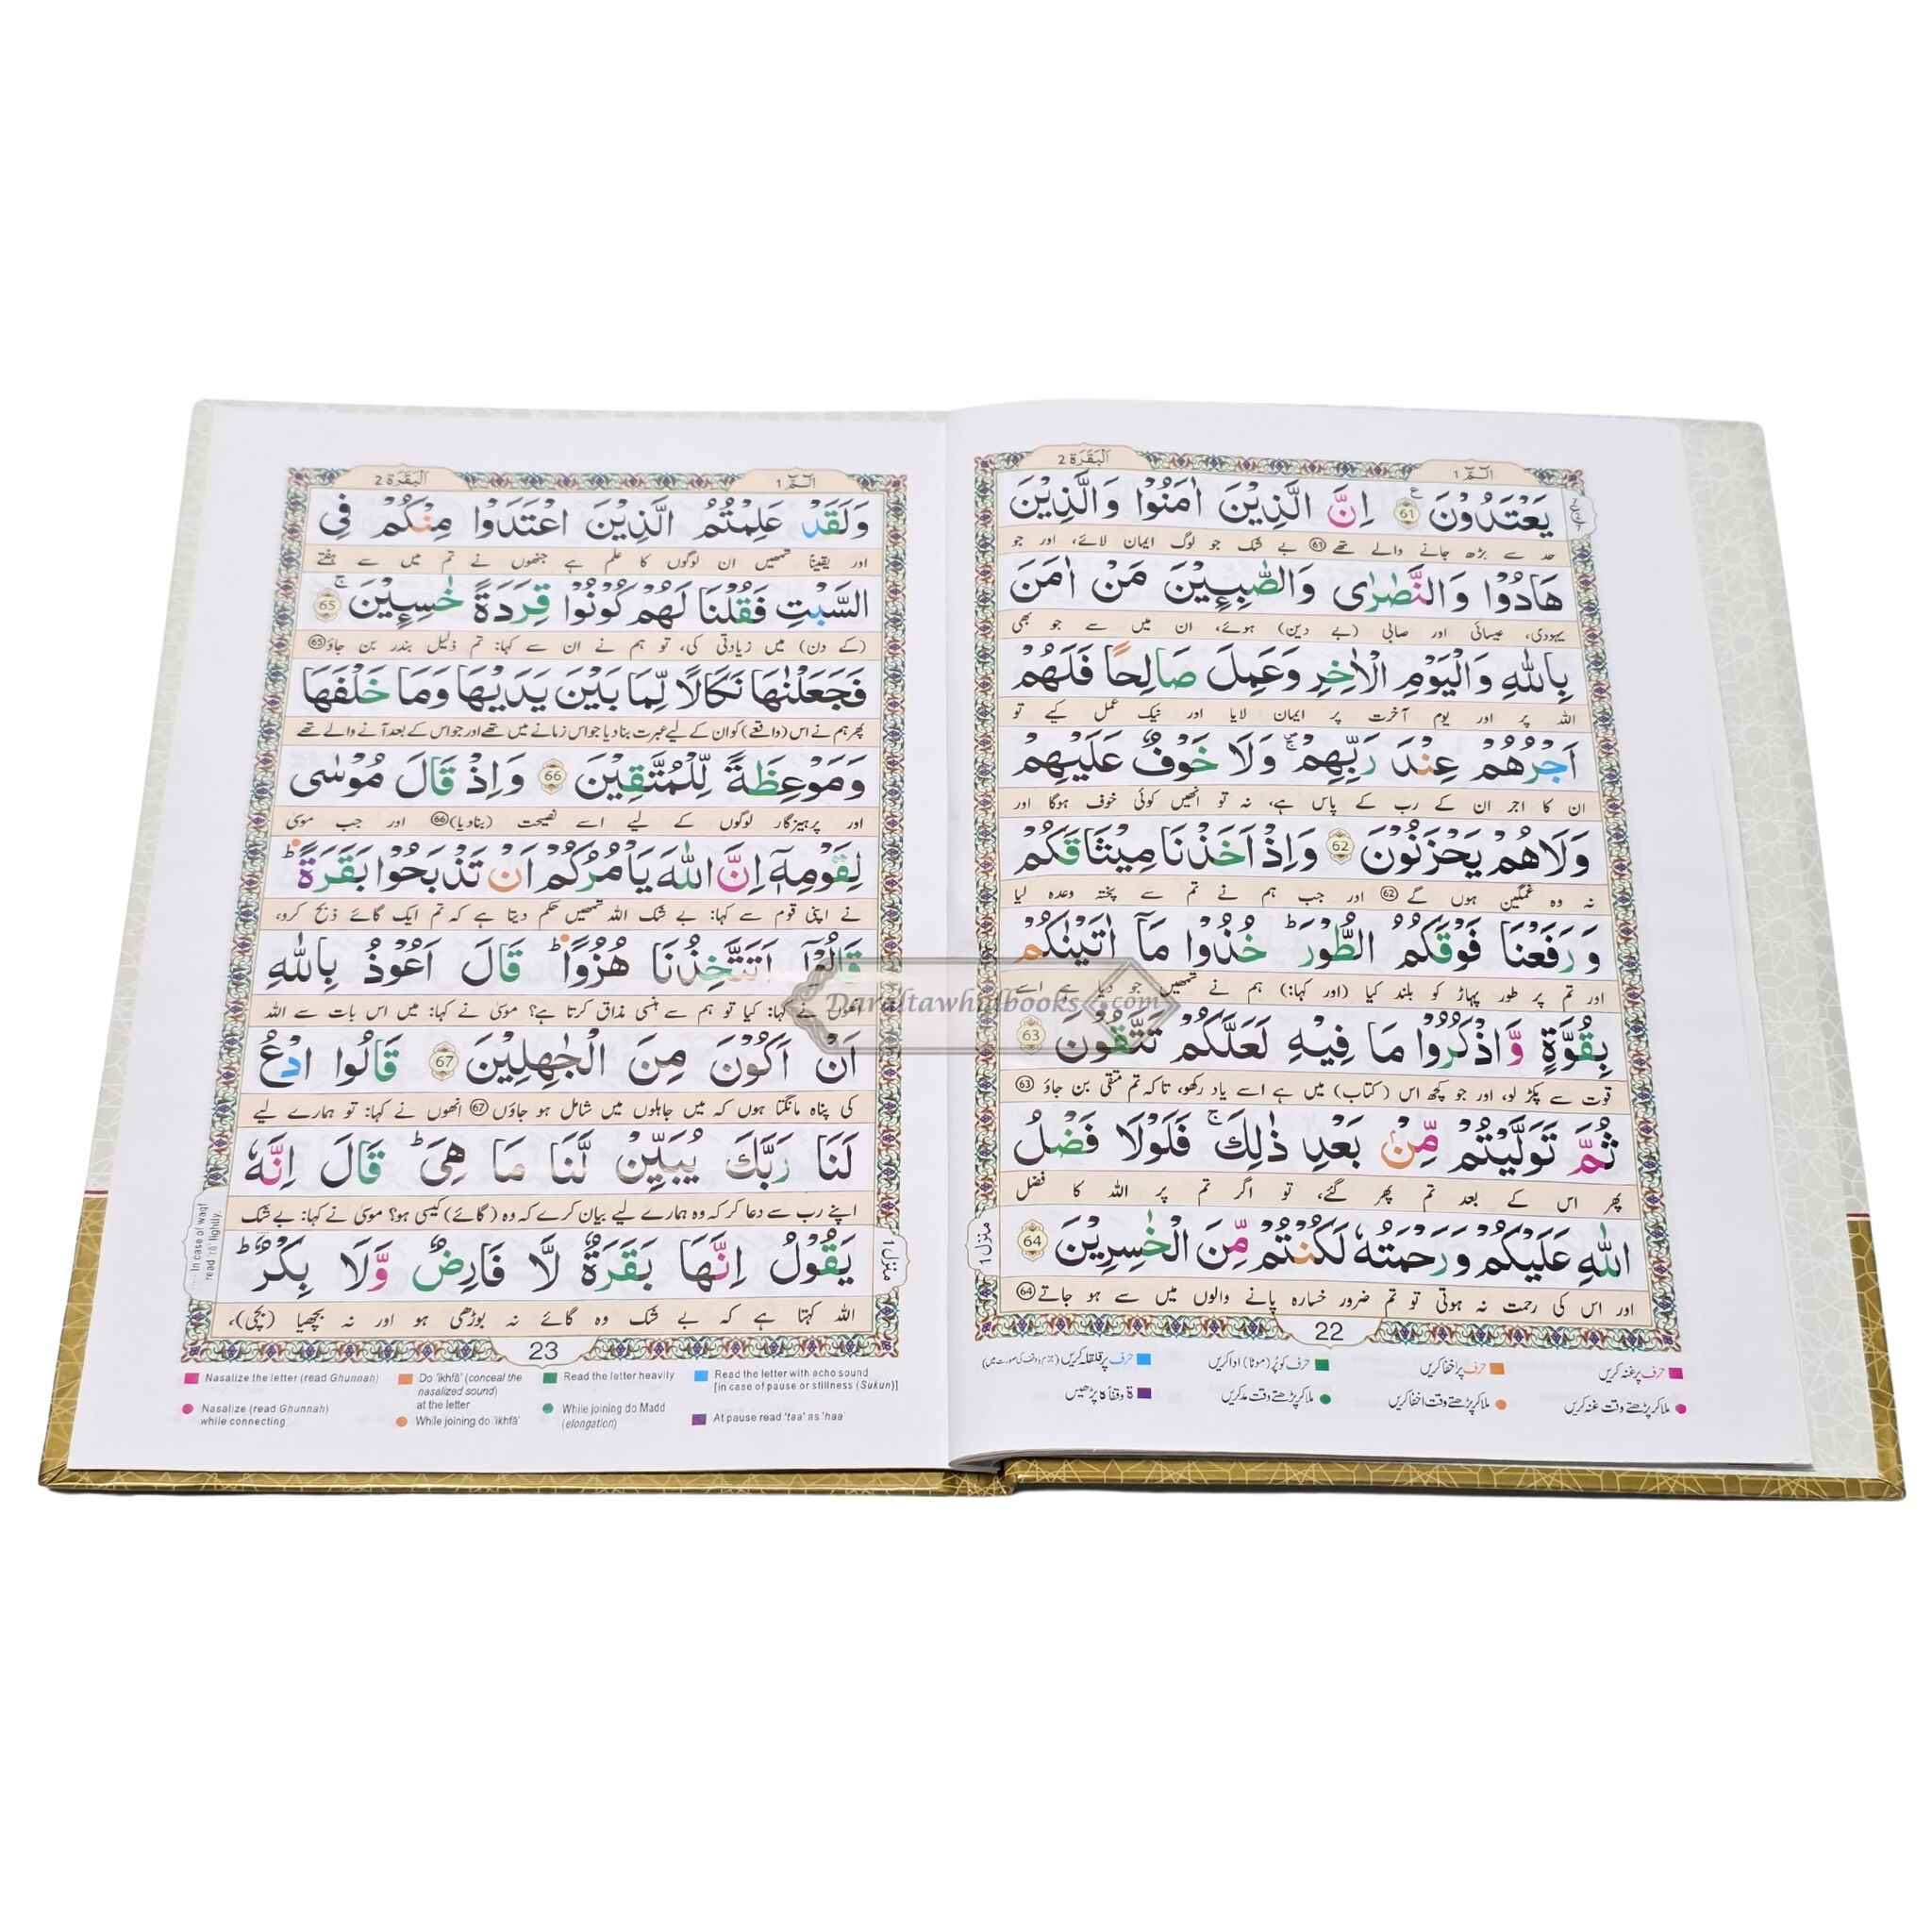 الٓمّٓ 1
اَلْبَقَرَة 2
يَعْتَدُوْنَ 61 اِنَّ الَّذِيْنَ اٰمَنُوْا وَالَّذِيْنَ
حد سے بڑھ جانے والے تھے 61 بے شک جو لوگ ایمان لائے، اور جو
هَادُوْا وَالنَّصٰرٰى وَالصّٰبِـِٕيْنَ مَنْ اٰمَنَ
یہودی، عیسائی اور صابی (بے دین) ہوئے، ان میں سے جو بھی
بِاللّٰهِ وَالْيَوْمِ الْاٰخِرِ وَعَمِلَ صَالِحًا فَلَهُمْ
اللہ پر اور یوم آخرت پر ایمان لایا اور نیک عمل کیے تو
اَجْرُهُمْ عِنْدَ رَبِّهِمْ ۚ وَلَا خَوْفٌ عَلَيْهِمْ
ان کا اجر ان کے رب کے پاس ہے، نہ تو انھیں کوئی خوف ہوگا اور
وَلَا هُمْ يَحْزَنُوْنَ 62 وَاِذْ اَخَذْنَا مِيْثَاقَكُمْ
نہ وہ غمگین ہوں گے 62 اور جب ہم نے تم سے پختہ وعدہ لیا
وَرَفَعْنَا فَوْقَكُمُ الطُّوْرَ ؕ خُذُوْا مَآ اٰتَيْنٰكُمْ
اور تم پر طور پہاڑ کو بلند کیا (اور کہا:) ہم نے تمھیں جو دیا ہے اسے
بِقُوَّةٍ وَّاذْكُرُوْا مَا فِيْهِ لَعَلَّكُمْ تَتَّقُوْنَ 63
قوت سے پکڑ لو، اور جو کچھ اس (کتاب) میں ہے اسے یاد رکھو، تاکہ تم متقی بن جاؤ 63
ثُمَّ تَوَلَّيْتُمْ مِّنْۢ بَعْدِ ذٰلِكَ ۚ فَلَوْلَا فَضْلُ
پھر اس کے بعد تم پھر گئے، تو اگر تم پر اللہ کا فضل
اللّٰهِ عَلَيْكُمْ وَرَحْمَتُهٗ لَكُنْتُمْ مِّنَ الْخٰسِرِيْنَ 64
اور اس کی رحمت نہ ہوتی تو تم ضرور خسارہ پانے والوں میں سے ہو جاتے 64
منزل 1
22
حرف پر غنہ کریں
حرف پر اخفا کریں
حرف کو پُر (موٹا) ادا کریں
حرف پر قلقلہ کریں
ملا کر پڑھتے وقت غنہ کریں
ملا کر پڑھتے وقت اخفا کریں
ملا کر پڑھتے وقت مد کریں
ة وقفاً ه پڑھیں
الٓمّٓ 1
اَلْبَقَرَة 2
وَلَقَدْ عَلِمْتُمُ الَّذِيْنَ اعْتَدَوْا مِنْكُمْ فِى
اور یقیناً تمھیں ان لوگوں کا علم ہے جنھوں نے تم میں سے ہفتے
السَّبْتِ فَقُلْنَا لَهُمْ كُوْنُوْا قِرَدَةً خٰسِـِٕيْنَ ۚ 65
(کے دن) میں زیادتی کی، تو ہم نے ان سے کہا: تم ذلیل بندر بن جاؤ 65
فَجَعَلْنٰهَا نَكَالًا لِّمَا بَيْنَ يَدَيْهَا وَمَا خَلْفَهَا
پھر ہم نے اس (واقعے) کو ان کے لیے عبرت بنا دیا جو اس زمانے میں تھے اور جو اس کے بعد آنے والے تھے
وَمَوْعِظَةً لِّلْمُتَّقِيْنَ 66 وَاِذْ قَالَ مُوْسٰى
اور پرہیزگار لوگوں کے لیے اسے نصیحت (بنا دیا) 66 اور جب موسیٰ
لِقَوْمِهٖٓ اِنَّ اللّٰهَ يَاْمُرُكُمْ اَنْ تَذْبَحُوْا بَقَرَةً ؕ
نے اپنی قوم سے کہا: بے شک اللہ تمھیں حکم دیتا ہے کہ تم ایک گائے ذبح کرو،
قَالُوْٓا اَتَتَّخِذُنَا هُزُوًا ؕ قَالَ اَعُوْذُ بِاللّٰهِ
انھوں نے کہا: کیا تو ہم سے ہنسی مذاق کرتا ہے؟ موسیٰ نے کہا: میں اس بات سے اللہ
اَنْ اَكُوْنَ مِنَ الْجٰهِلِيْنَ 67 قَالُوا ادْعُ
کی پناہ مانگتا ہوں کہ میں جاہلوں میں شامل ہو جاؤں 67 انھوں نے کہا: تو ہمارے لیے
لَنَا رَبَّكَ يُبَيِّنْ لَّنَا مَا هِىَ ؕ قَالَ اِنَّهٗ
اپنے رب سے دعا کر کہ وہ ہمارے لیے بیان کرے کہ وہ (گائے) کیسی ہو؟ موسیٰ نے کہا: بے شک
يَقُوْلُ اِنَّهَا بَقَرَةٌ لَّا فَارِضٌ وَّلَا بِكْرٌ ؕ
اللہ کہتا ہے کہ بے شک وہ گائے نہ بوڑھی ہو اور نہ بچھیا (بچی)،
منزل 1
In case of waqf
read 'ra' lightly
23
Nasalize the letter (read Ghunnah)
Do 'ikhfā' (conceal the
nasalized sound)
at the letter
Read the letter heavily
Read the letter with acho sound
[in case of pause or stillness (Sukun)]
Nasalize (read Ghunnah)
while connecting
While joining do 'ikhfā'
While joining do Madd
(elongation)
At pause read 'taa' as 'haa'
Daraltawhidbooks.com